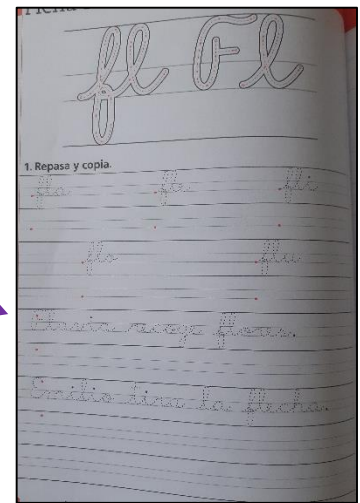 fl Fl
1. Repasa y copia.
fla fla fli
flo flu
recoge flores.
Emilio tira la flecha.